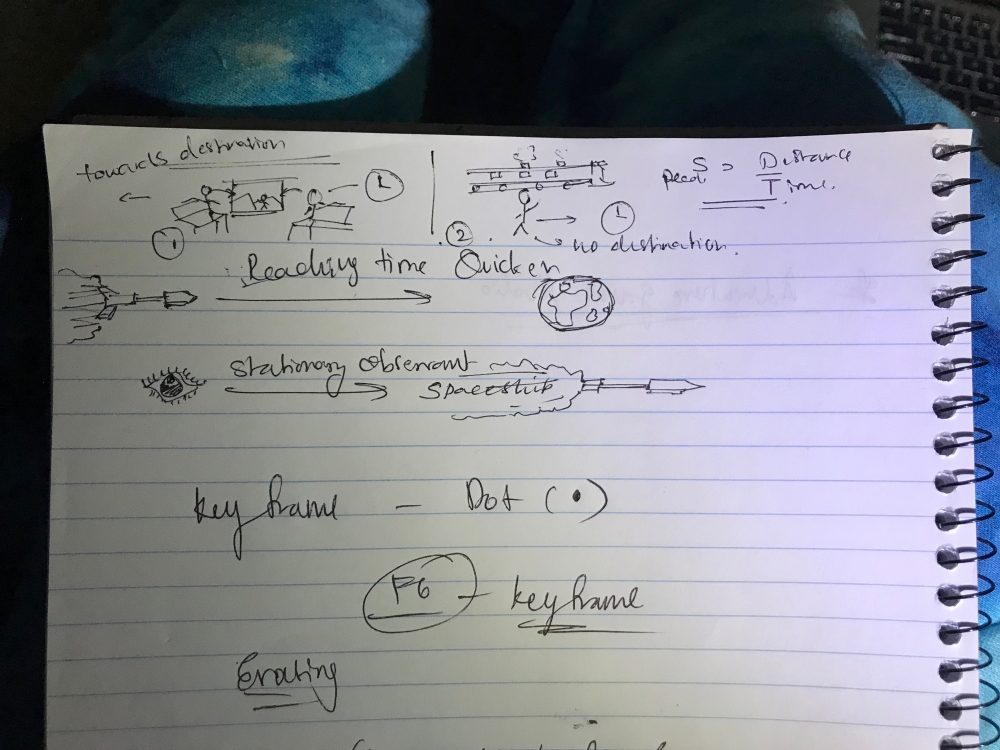 towards destination
L
1
2
L
no destination.
Speed = Distance
Time.
Reaching time Quicker
Stationary observant
Spaceship
Key frame – Dot (•)
F6 – keyframe
Erating